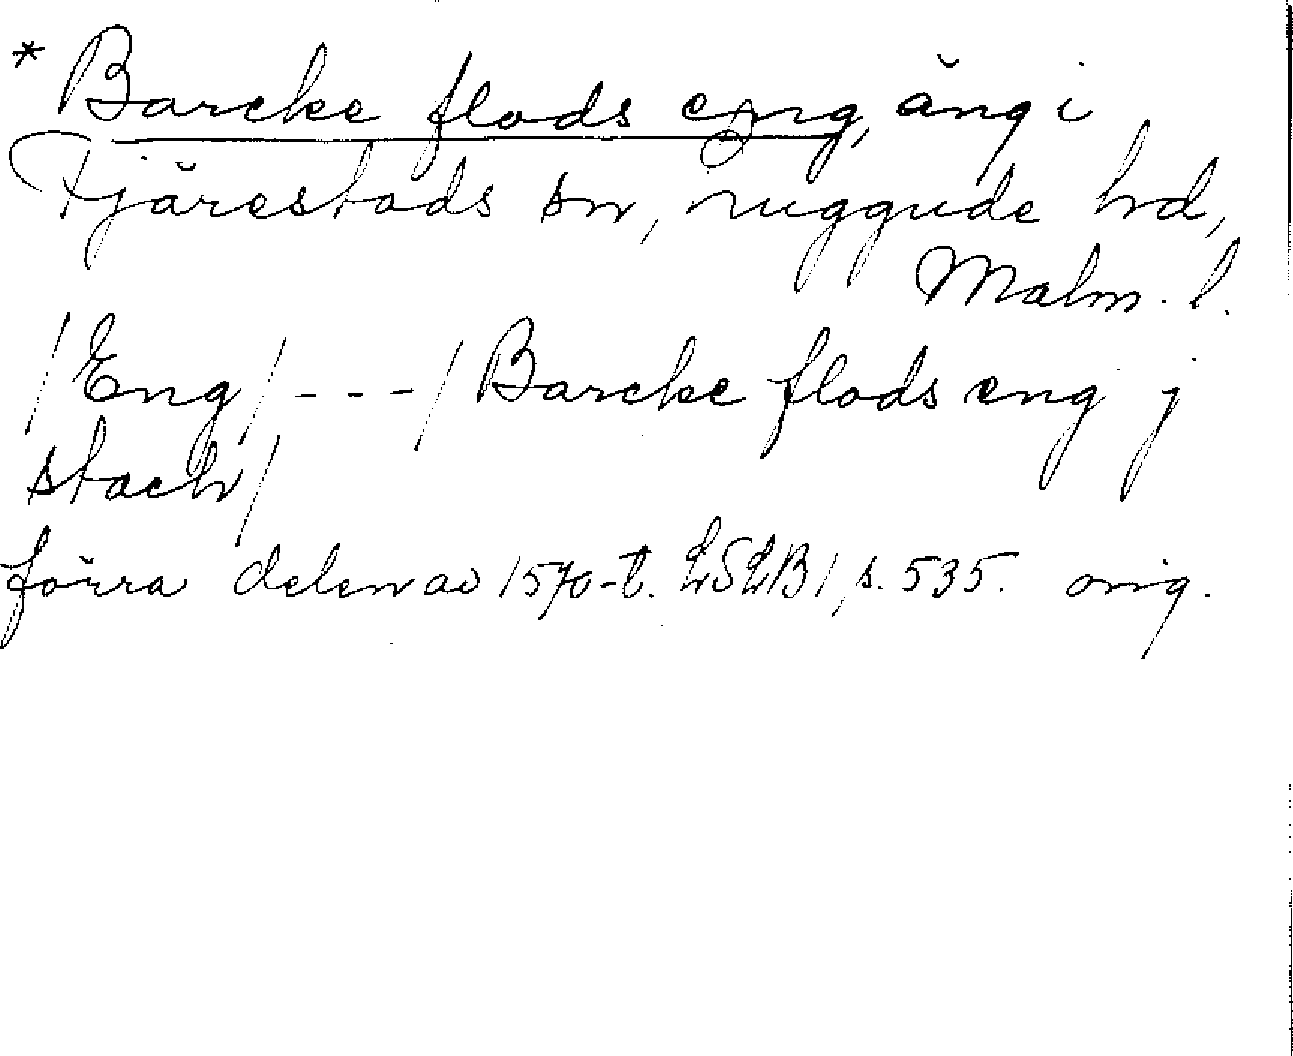 * Barcke flods eng, äng i
Fjärestads sn, Luggude hd,
Malm. l.
/Eng/---/Barcke flods eng j
stach/
förra delen av 1570-t. LSLB1, s. 535. orig.